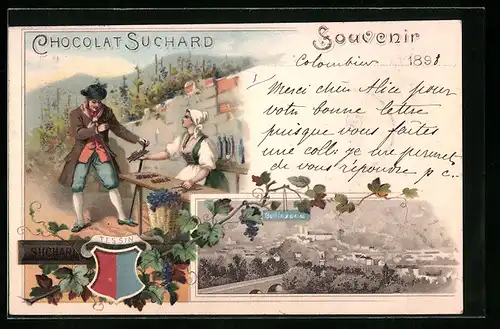 CHOCOLAT SUCHARD
Souvenir
Colombier 1898
Merci chère Alice pour
votre bonne lettre
puisque vous faites
une coll. je me permet
de vous répondre p c..
Bellinzona
SUCHARD
TESSIN